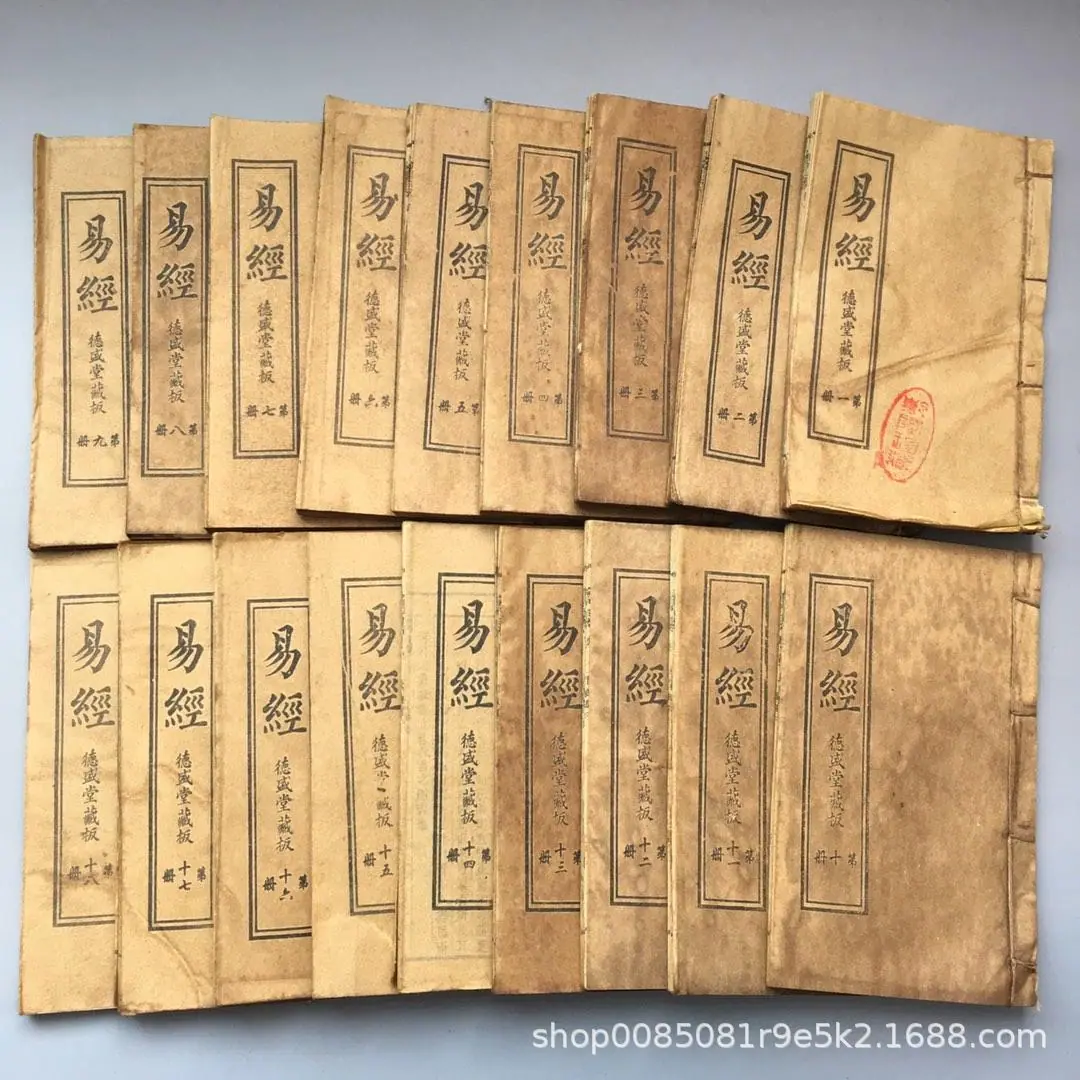 易經
德盛堂藏板
第一冊
易經
德盛堂藏板
二冊
易經
德盛堂藏板
第三冊
易經
德盛堂藏板
四冊
易經
德盛堂藏板
第五冊
易經
德盛堂藏板
第六冊
易經
德盛堂藏板
第七冊
易經
德盛堂藏板
第八冊
易經
德盛堂藏板
第九冊
易經
德盛堂藏板
第十
易經
德盛堂藏板
十一冊
易經
德盛堂藏板
十二冊
易經
德盛堂藏板
第十三冊
易經
德盛堂藏板
第十四冊
易經
德盛堂藏板
十五冊
易經
德盛堂藏板
第十六冊
易經
德盛堂藏板
第十七冊
易經
德盛堂藏板
十八冊
shop0085081r9e5k2.1688.com